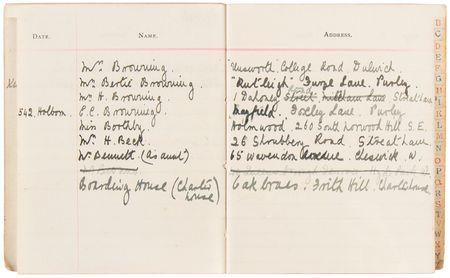 DATE. NAME. ADDRESS.
Mrs Browning. Unsworth. College Road Dulwich.
Mrs Bertie Browning. "Rutleigh" Furze Lane, Purley.
Mr H. Browning. 1 Daloney Street. Streatham
542 Holborn. E. C. Browning. Mayfield, Foxley Lane. Purley
Miss Boothby. Holmwood, 260 South Norwood Hill S.E.
Mr H. Beck. 26 Shrubbery Road. Streatham.
Mr Bennett (as aunt) 65 Wavendon Avenue. Chiswick. W.
Boarding House (Charter house) Oakbraes. Frith Hill. Charterhouse
B
C
D
E
F
G
H
I
K
L
M
N
O
P
Q
R
S
T
U
V
W
X
Y
Z